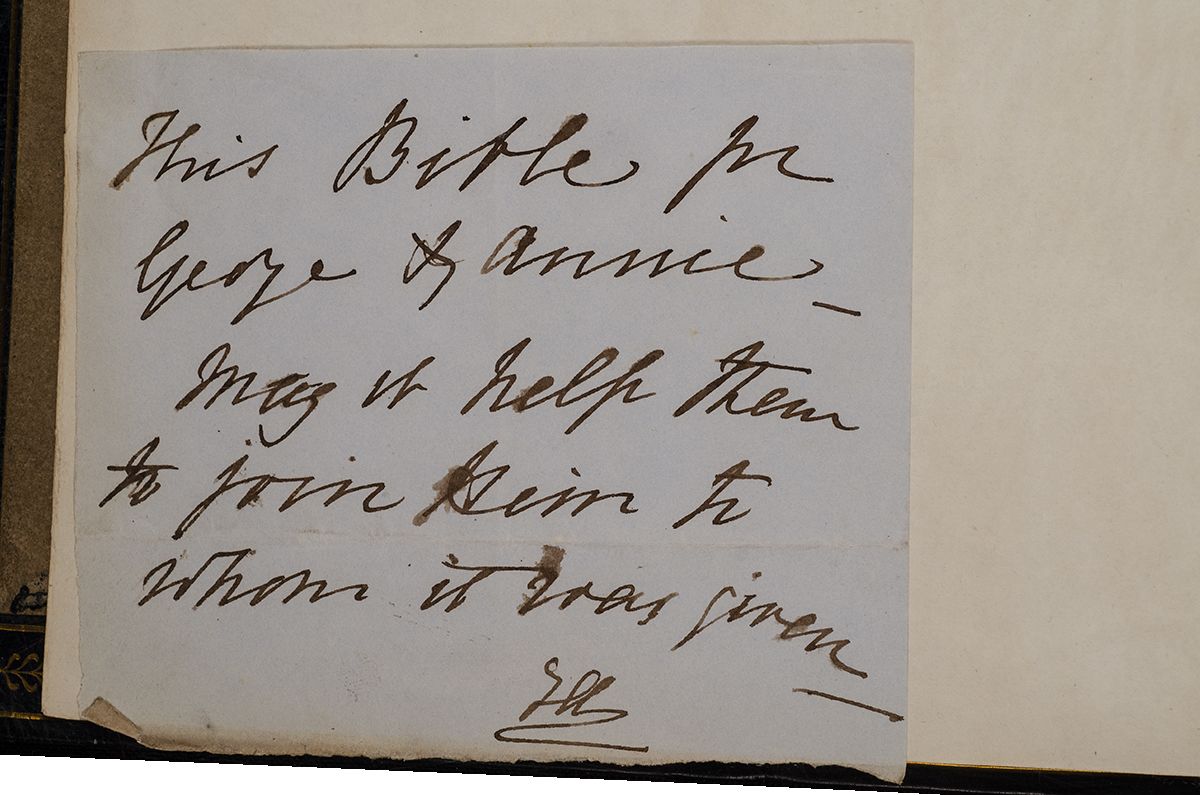 This Bible for
George & Annie –
May it help them
to join Him to
whom it was given –